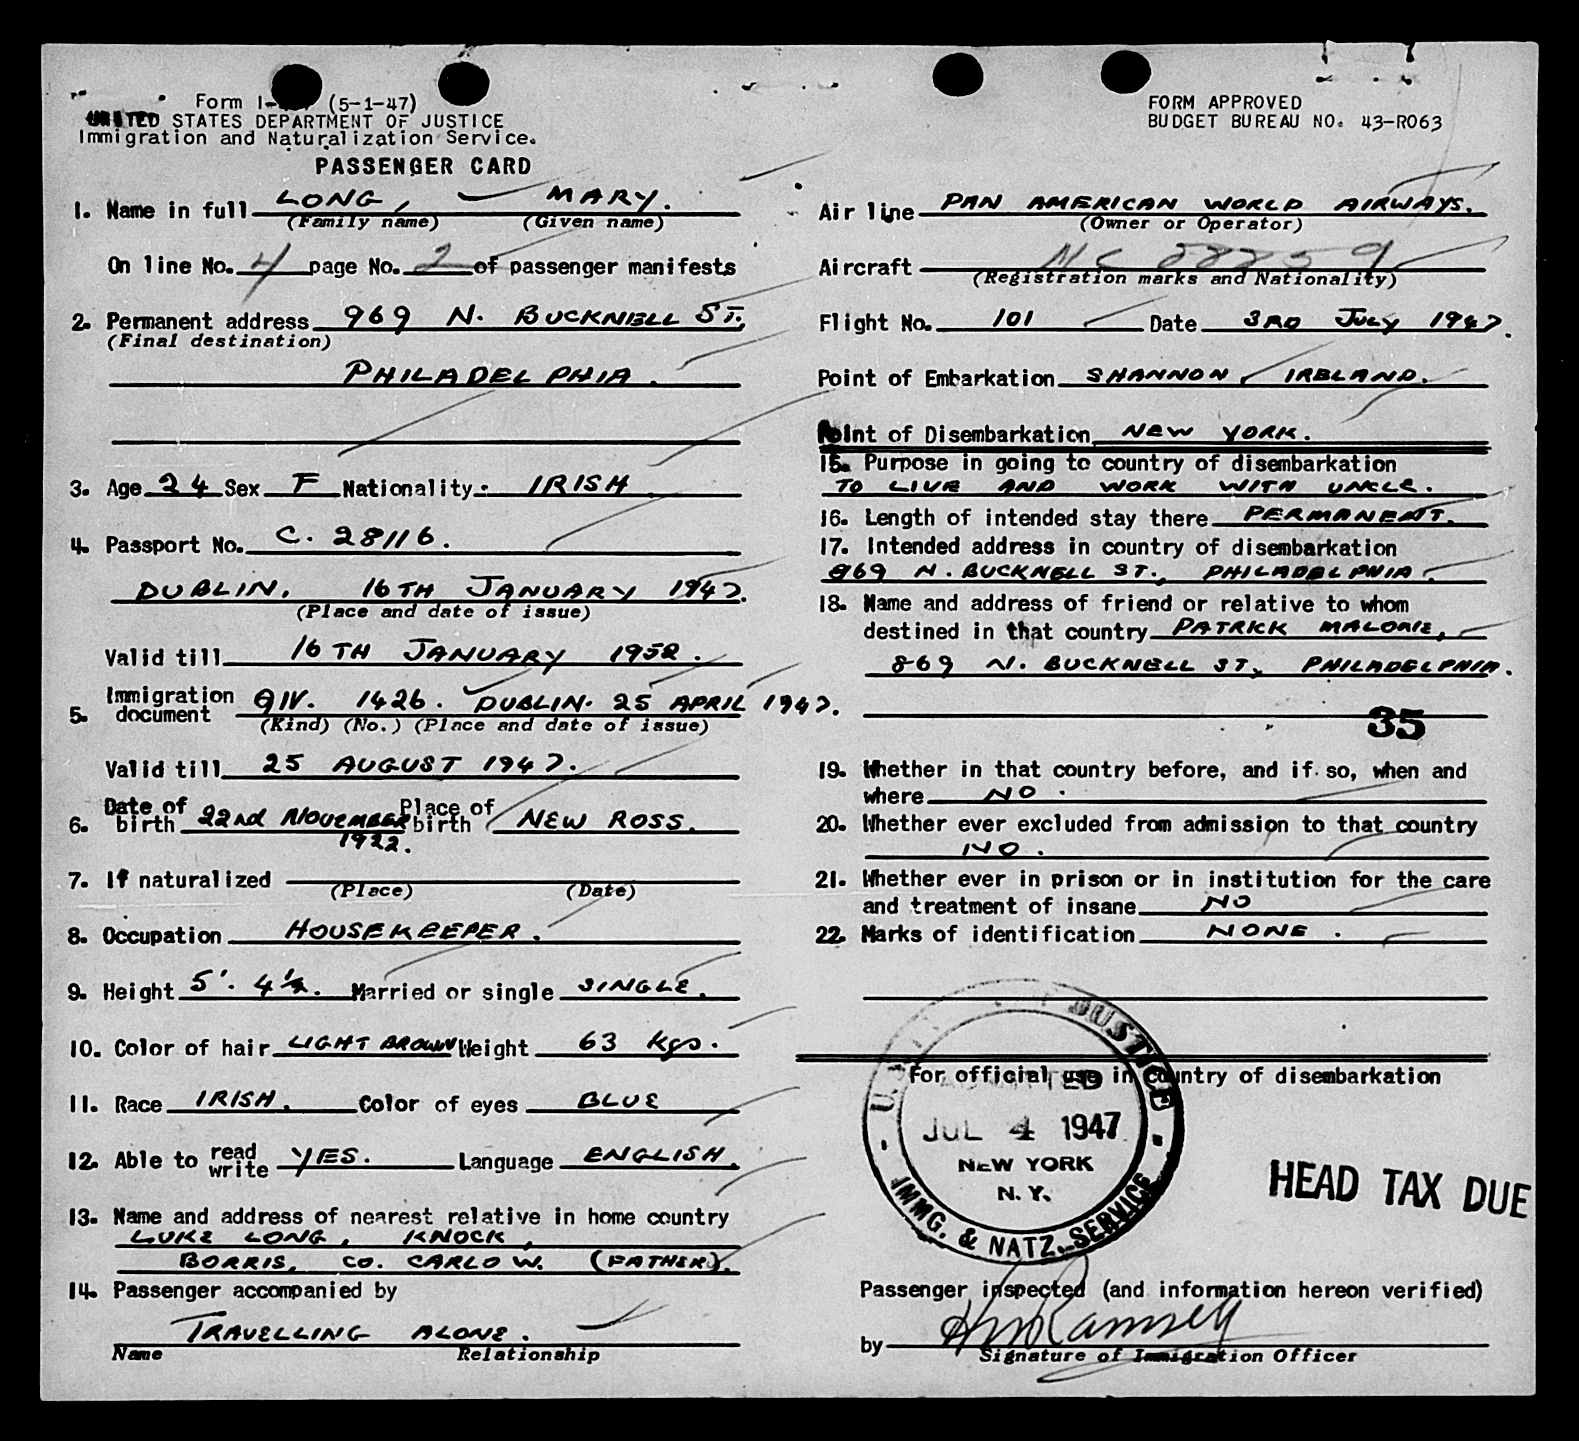 Form I- (5-1-47)
UNITED STATES DEPARTMENT OF JUSTICE
Immigration and Naturalization Service.
PASSENGER CARD
FORM APPROVED
BUDGET BUREAU NO. 43-R063
1. Name in full LONG, MARY.
(Family name) (Given name)
On line No. 4 page No. 2 of passenger manifests
2. Permanent address 969 N. BUCKNELL ST.,
(Final destination)
PHILADELPHIA.
3. Age 24 Sex F Nationality. IRISH
4. Passport No. C. 28116.
DUBLIN, 16TH JANUARY 1947.
(Place and date of issue)
Valid till 16TH JANUARY 1952.
5. Immigration document QIV. 1426. DUBLIN. 25 APRIL 1947.
(Kind) (No.) (Place and date of issue)
Valid till 25 AUGUST 1947.
6. Date of birth 22nd NOVEMBER 1922. Place of birth NEW ROSS.
7. If naturalized
(Place) (Date)
8. Occupation HOUSEKEEPER.
9. Height 5'. 4½. Married or single SINGLE.
10. Color of hair LIGHT BROWN Weight 63 Kgs.
11. Race IRISH. Color of eyes BLUE
12. Able to read write YES. Language ENGLISH.
13. Name and address of nearest relative in home country
LUKE LONG, KNOCK,
BORRIS, CO. CARLOW. (FATHER).
14. Passenger accompanied by
TRAVELLING ALONE.
Name Relationship
Air line PAN AMERICAN WORLD AIRWAYS.
(Owner or Operator)
Aircraft NC 88859
(Registration marks and Nationality)
Flight No. 101 Date 3RD JULY 1947.
Point of Embarkation SHANNON, IRELAND.
Point of Disembarkation NEW YORK.
15. Purpose in going to country of disembarkation
TO LIVE AND WORK WITH UNCLE.
16. Length of intended stay there PERMANENT.
17. Intended address in country of disembarkation
869 N. BUCKNELL ST., PHILADELPHIA.
18. Name and address of friend or relative to whom
destined in that country PATRICK MALONE,
869 N. BUCKNELL ST, PHILADELPHIA.
35
19. Whether in that country before, and if so, when and
where NO.
20. Whether ever excluded from admission to that country
NO.
21. Whether ever in prison or in institution for the care
and treatment of insane NO
22. Marks of identification NONE.
For official use in country of disembarkation
JUSTICE
ADMITTED
JUL 4 1947
NEW YORK
N. Y.
IMMG. & NATZ. SERVICE
HEAD TAX DUE
Passenger inspected (and information hereon verified)
by
Signature of Immigration Officer